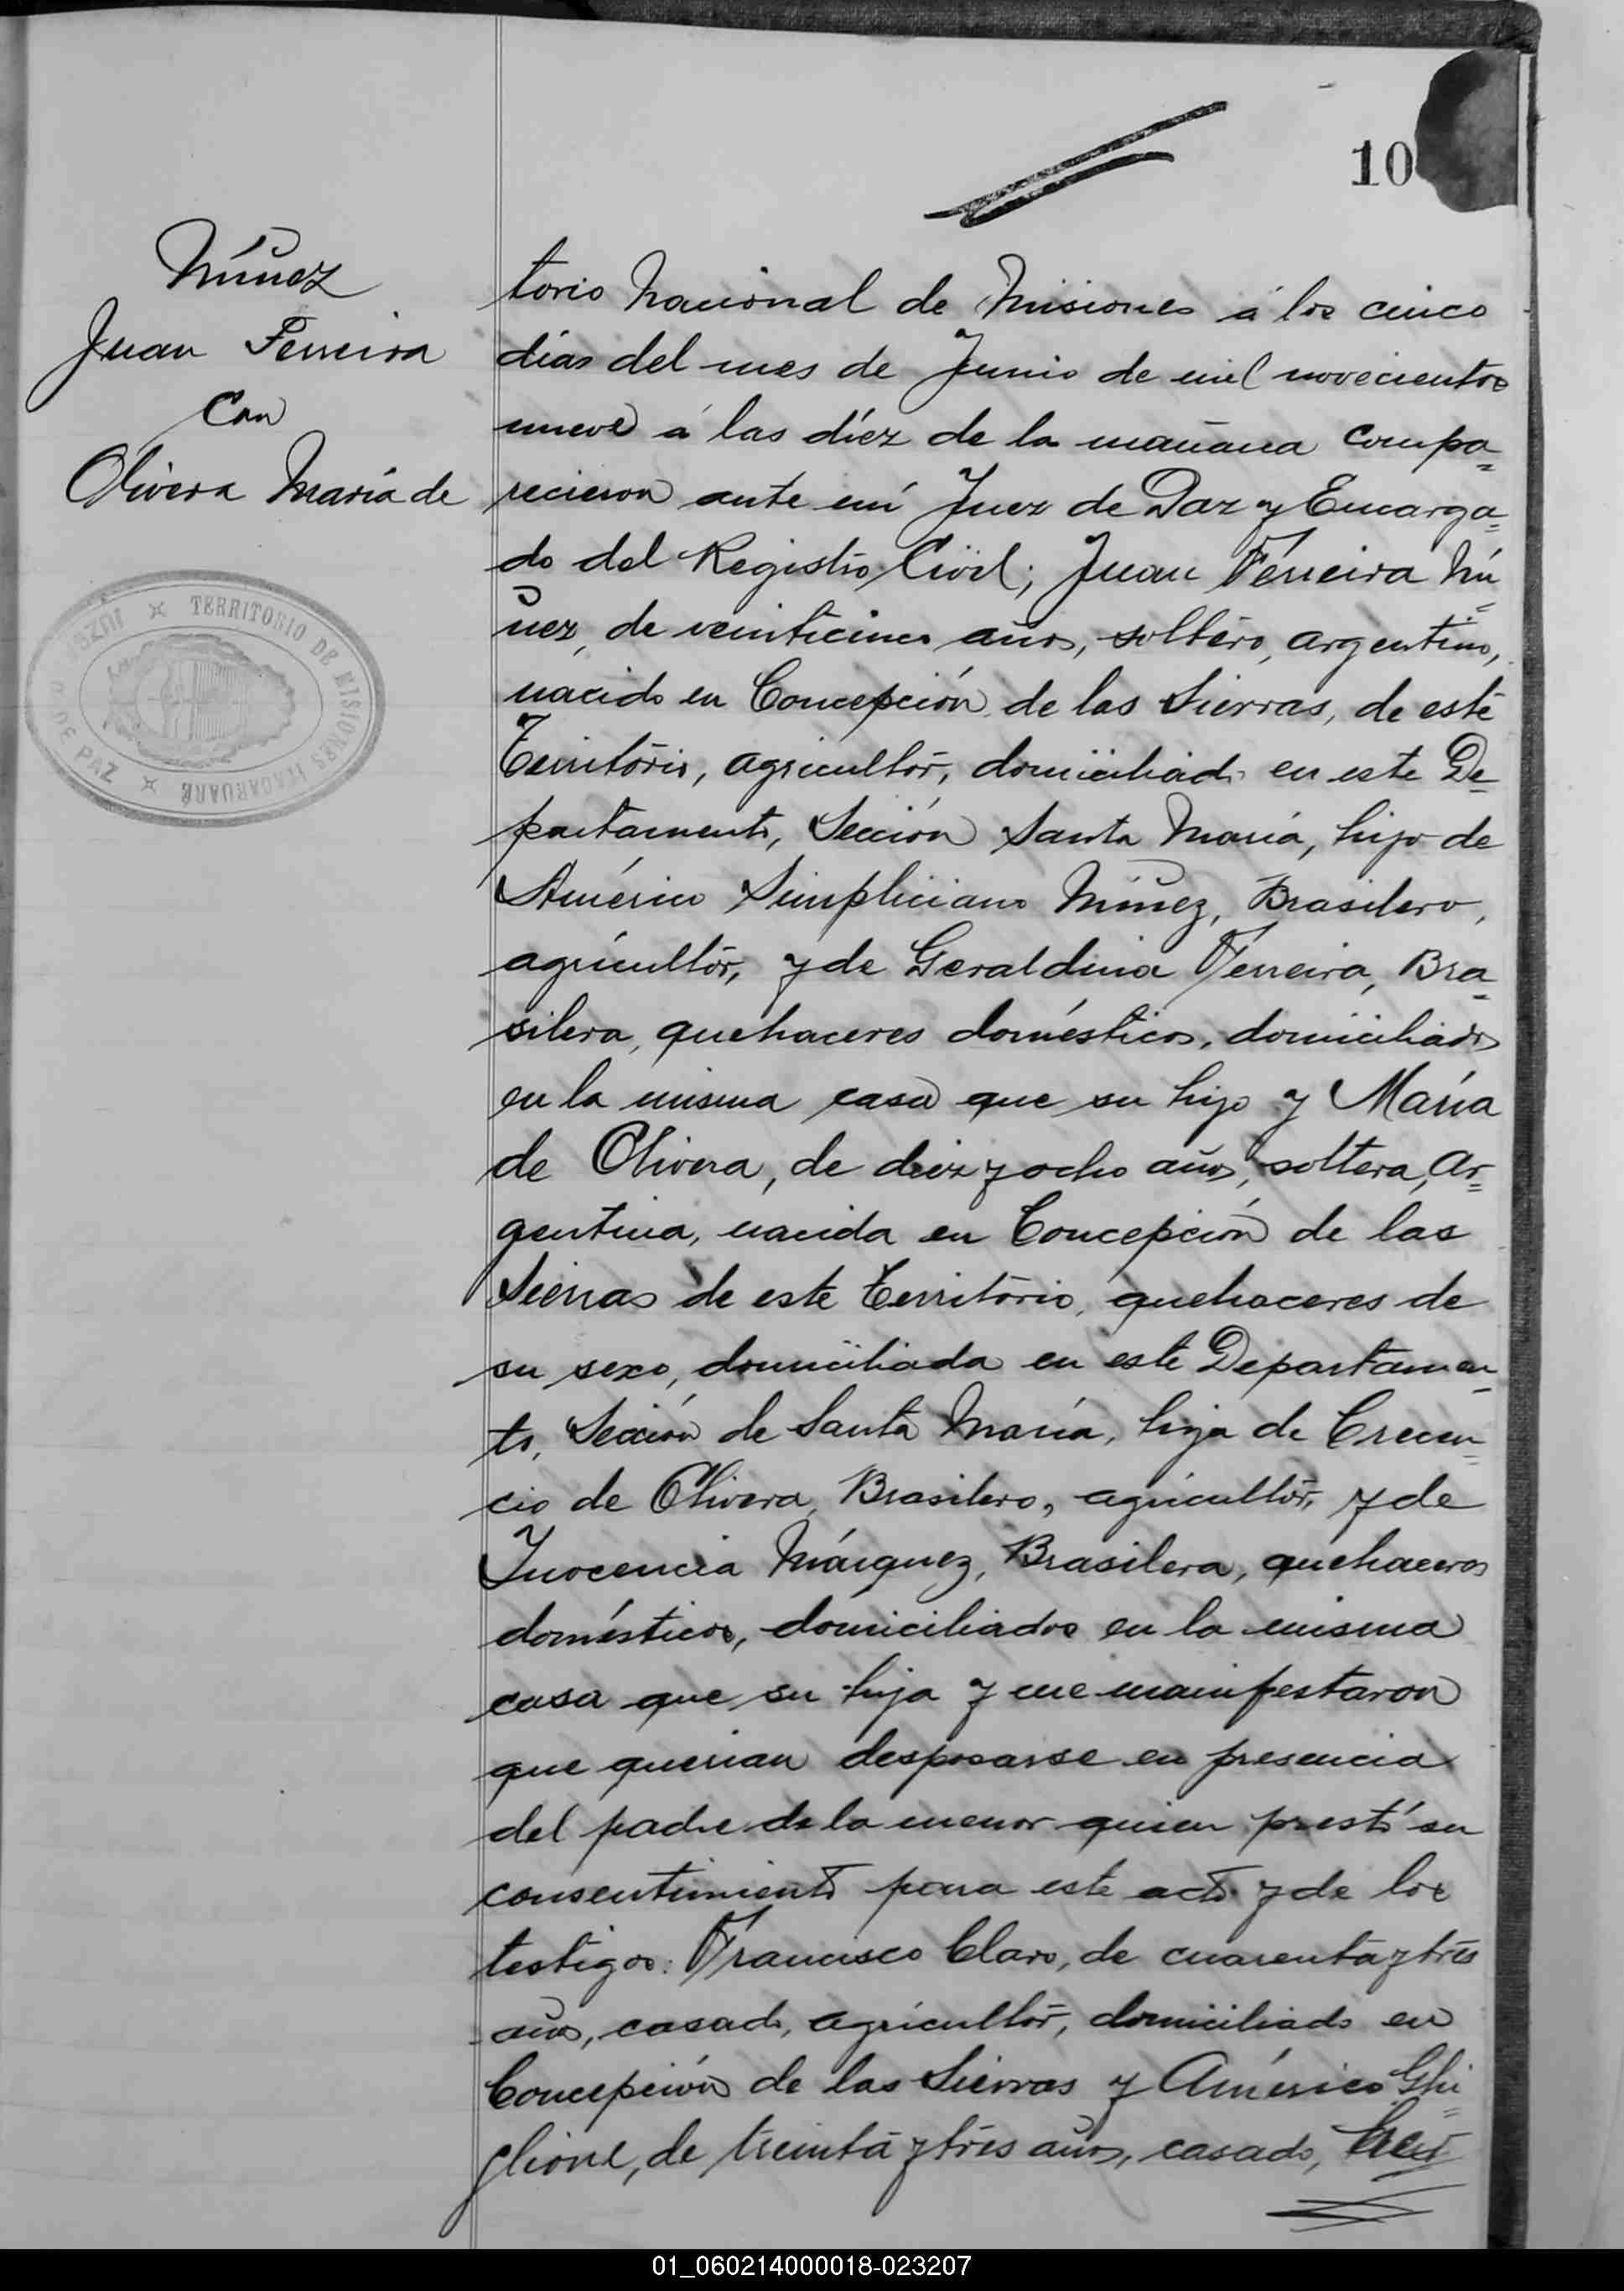 10
Núñez
Juan Ferreira
Con
Olivera María de
JUZGADO DE PAZ
TERRITORIO DE MISIONES ITACARUARÉ
torio Nacional de Misiones á los cinco
días del mes de Junio de mil novecientos
nueve á las diez de la mañana compa=
recieron ante mí Juez de Paz y Encarga=
do del Registro Civil; Juan Ferreira Nú=
ñez, de veinticinco años, soltero, argentino,
nacido en Concepción de las Sierras, de este
Territorio, agricultor, domiciliado en este De=
partamento, Sección Santa María, hijo de
Américo Simpliciano Núñez, Brasilero,
agricultor, y de Geraldina Ferreira, Bra=
silera, quehaceres domésticos, domiciliados
en la misma casa que su hijo y María
de Olivera, de diez y ocho años, soltera, Ar=
gentina, nacida en Concepción de las
Sierras de este Territorio, quehaceres de
su sexo, domiciliada en este Departamen=
to, Sección de Santa María, hija de Crecen=
cio de Olivera, Brasilero, agricultor, y de
Inocencia Márquez, Brasilera, quehaceres
domésticos, domiciliados en la misma
casa que su hija y me manifestaron
que querian desposarse en presencia
del padre de la menor quien prestó su
consentimiento para este acto y de los
testigos: Francisco Claro, de cuarenta y tres
años, casado, agricultor, domiciliado en
Concepción de las Sierras y Américo Ghi=
glione, de treinta y tres años, casado,
01_060214000018-023207